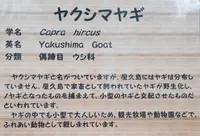 ヤクシマヤギ
学名 Capra hircus
英名 Yakushima Goat
分類 偶蹄目 ウシ科
ヤクシマヤギと名がついていますが、屋久島にはヤギは分布し
ていません。屋久島で家畜として飼われていたヤギが野生化し、
ノヤギとなったものを捕まえて、小型のヤギと交配させたものだ
といわれています。
ヤギの中でも小型で大人しいため、観光牧場や動物園などで、
ふれあい動物として親しまれています。